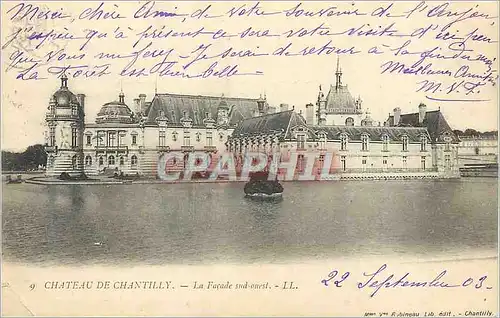 Merci, chère Amie, de votre souvenir de l'Anjou
j'espère qu'à présent ce sera votre visite d'ici peu
que vous me ferez - Je serai de retour à la fin du mois
La Forêt est bien belle =
Meilleures Amitiés
M. V.
CPARAMA
CPAPHIL
9 CHATEAU DE CHANTILLY. — La Façade sud-ouest. - LL.
22 Septembre 03.
Mme Vve Robineau Lib. édit. - Chantilly.